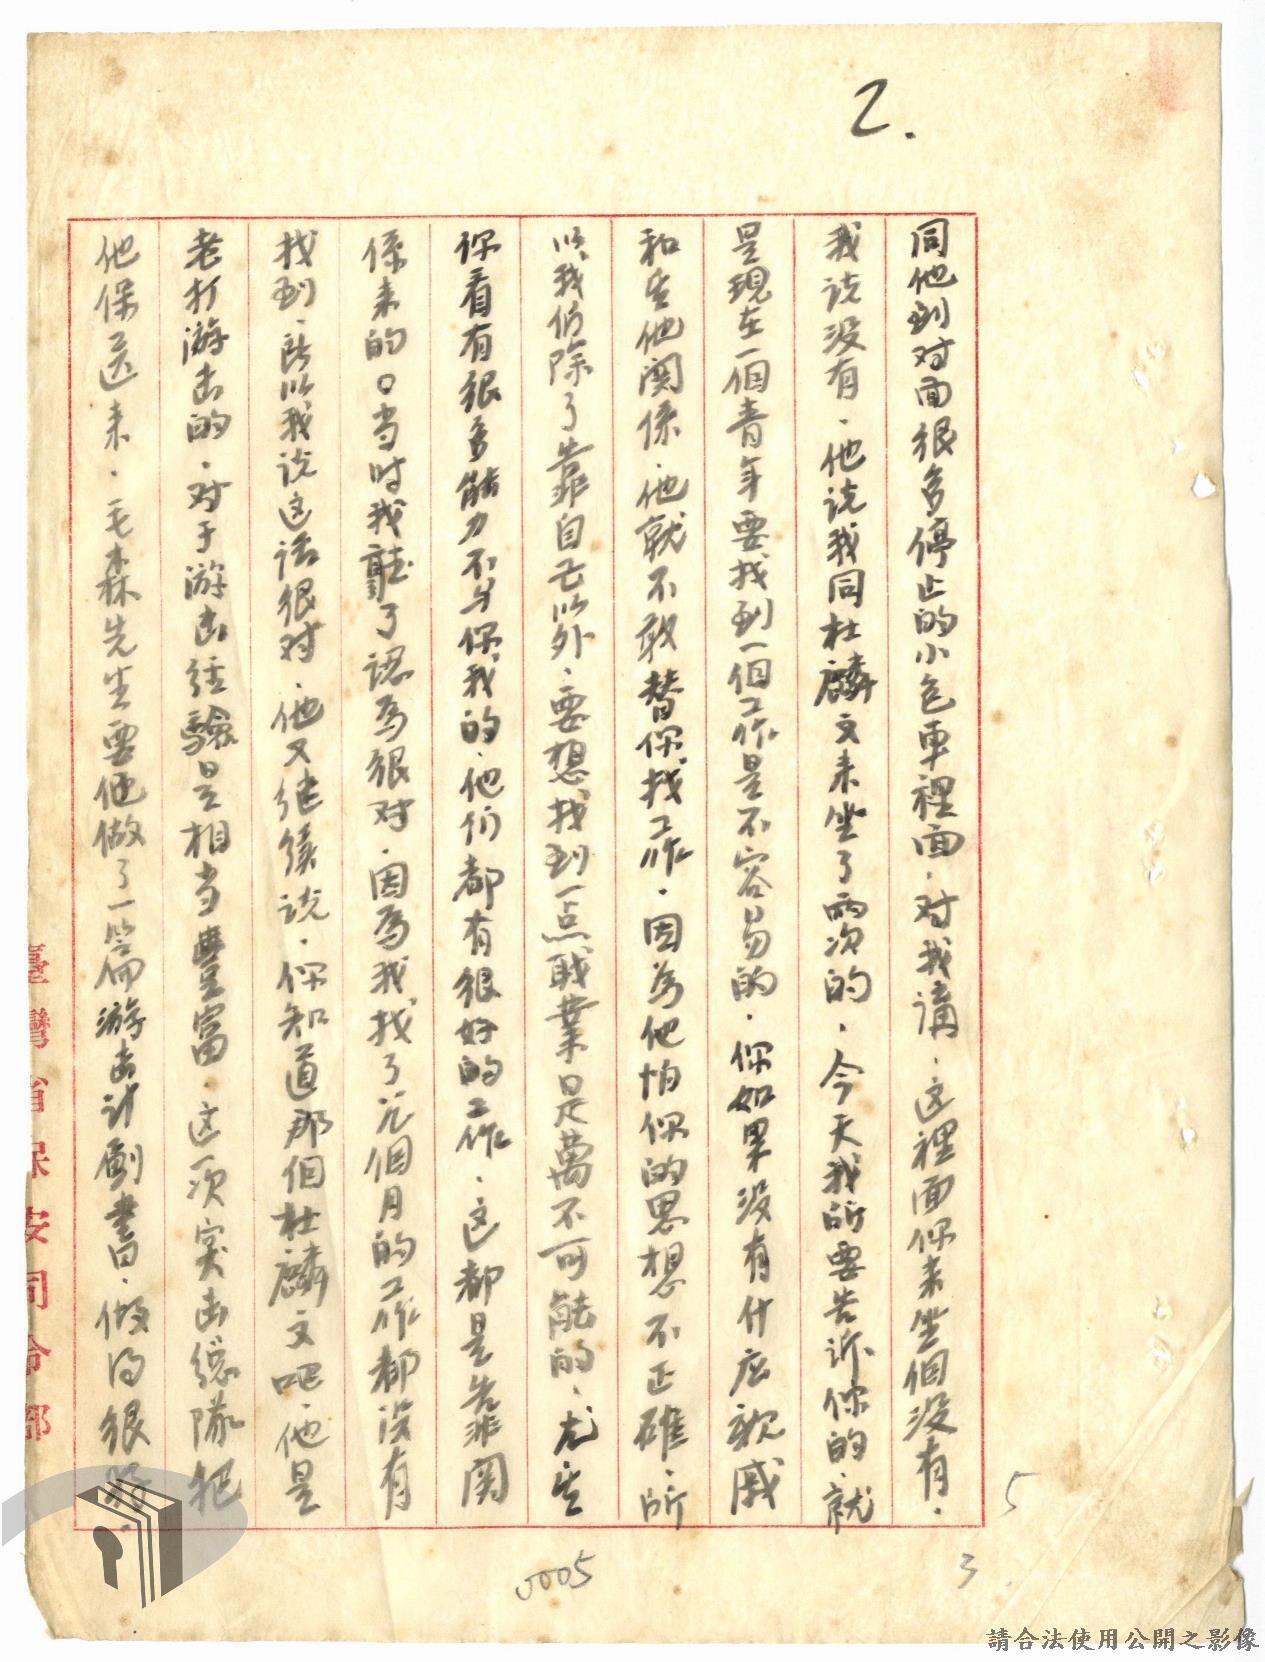 2.
同他到对面很多停止的小包車裡面．对我講．这裡面你来坐個没有．
我说没有．他说我同杜麟文来坐了兩次的．今天我所要告訴你的．就
是現在一個青年要找到一個工作是不容易的．你如果没有什庅親戚
和其他関係．他就不敢替你找工作．因為他怕你的思想不正確．所
以我们除了靠自己以外．要想找到一点職業是萬不可能的．尤其
你看有很多能力不与你我的．他们都有很好的工作．这都是靠関
係来的。当时我聽了認為很对．因為我找了几個月的工作都没有
找到．所以我说这话很对．他又继续说．你知道那個杜麟文吧．他是
老打游击的．对于游击经驗是相当豊富．这一次突击總隊把
他保送来．毛森先生要他做了一篇游击计劃書．做的很好．
臺灣省保安司令部
5
3
0005
請合法使用公開之影像